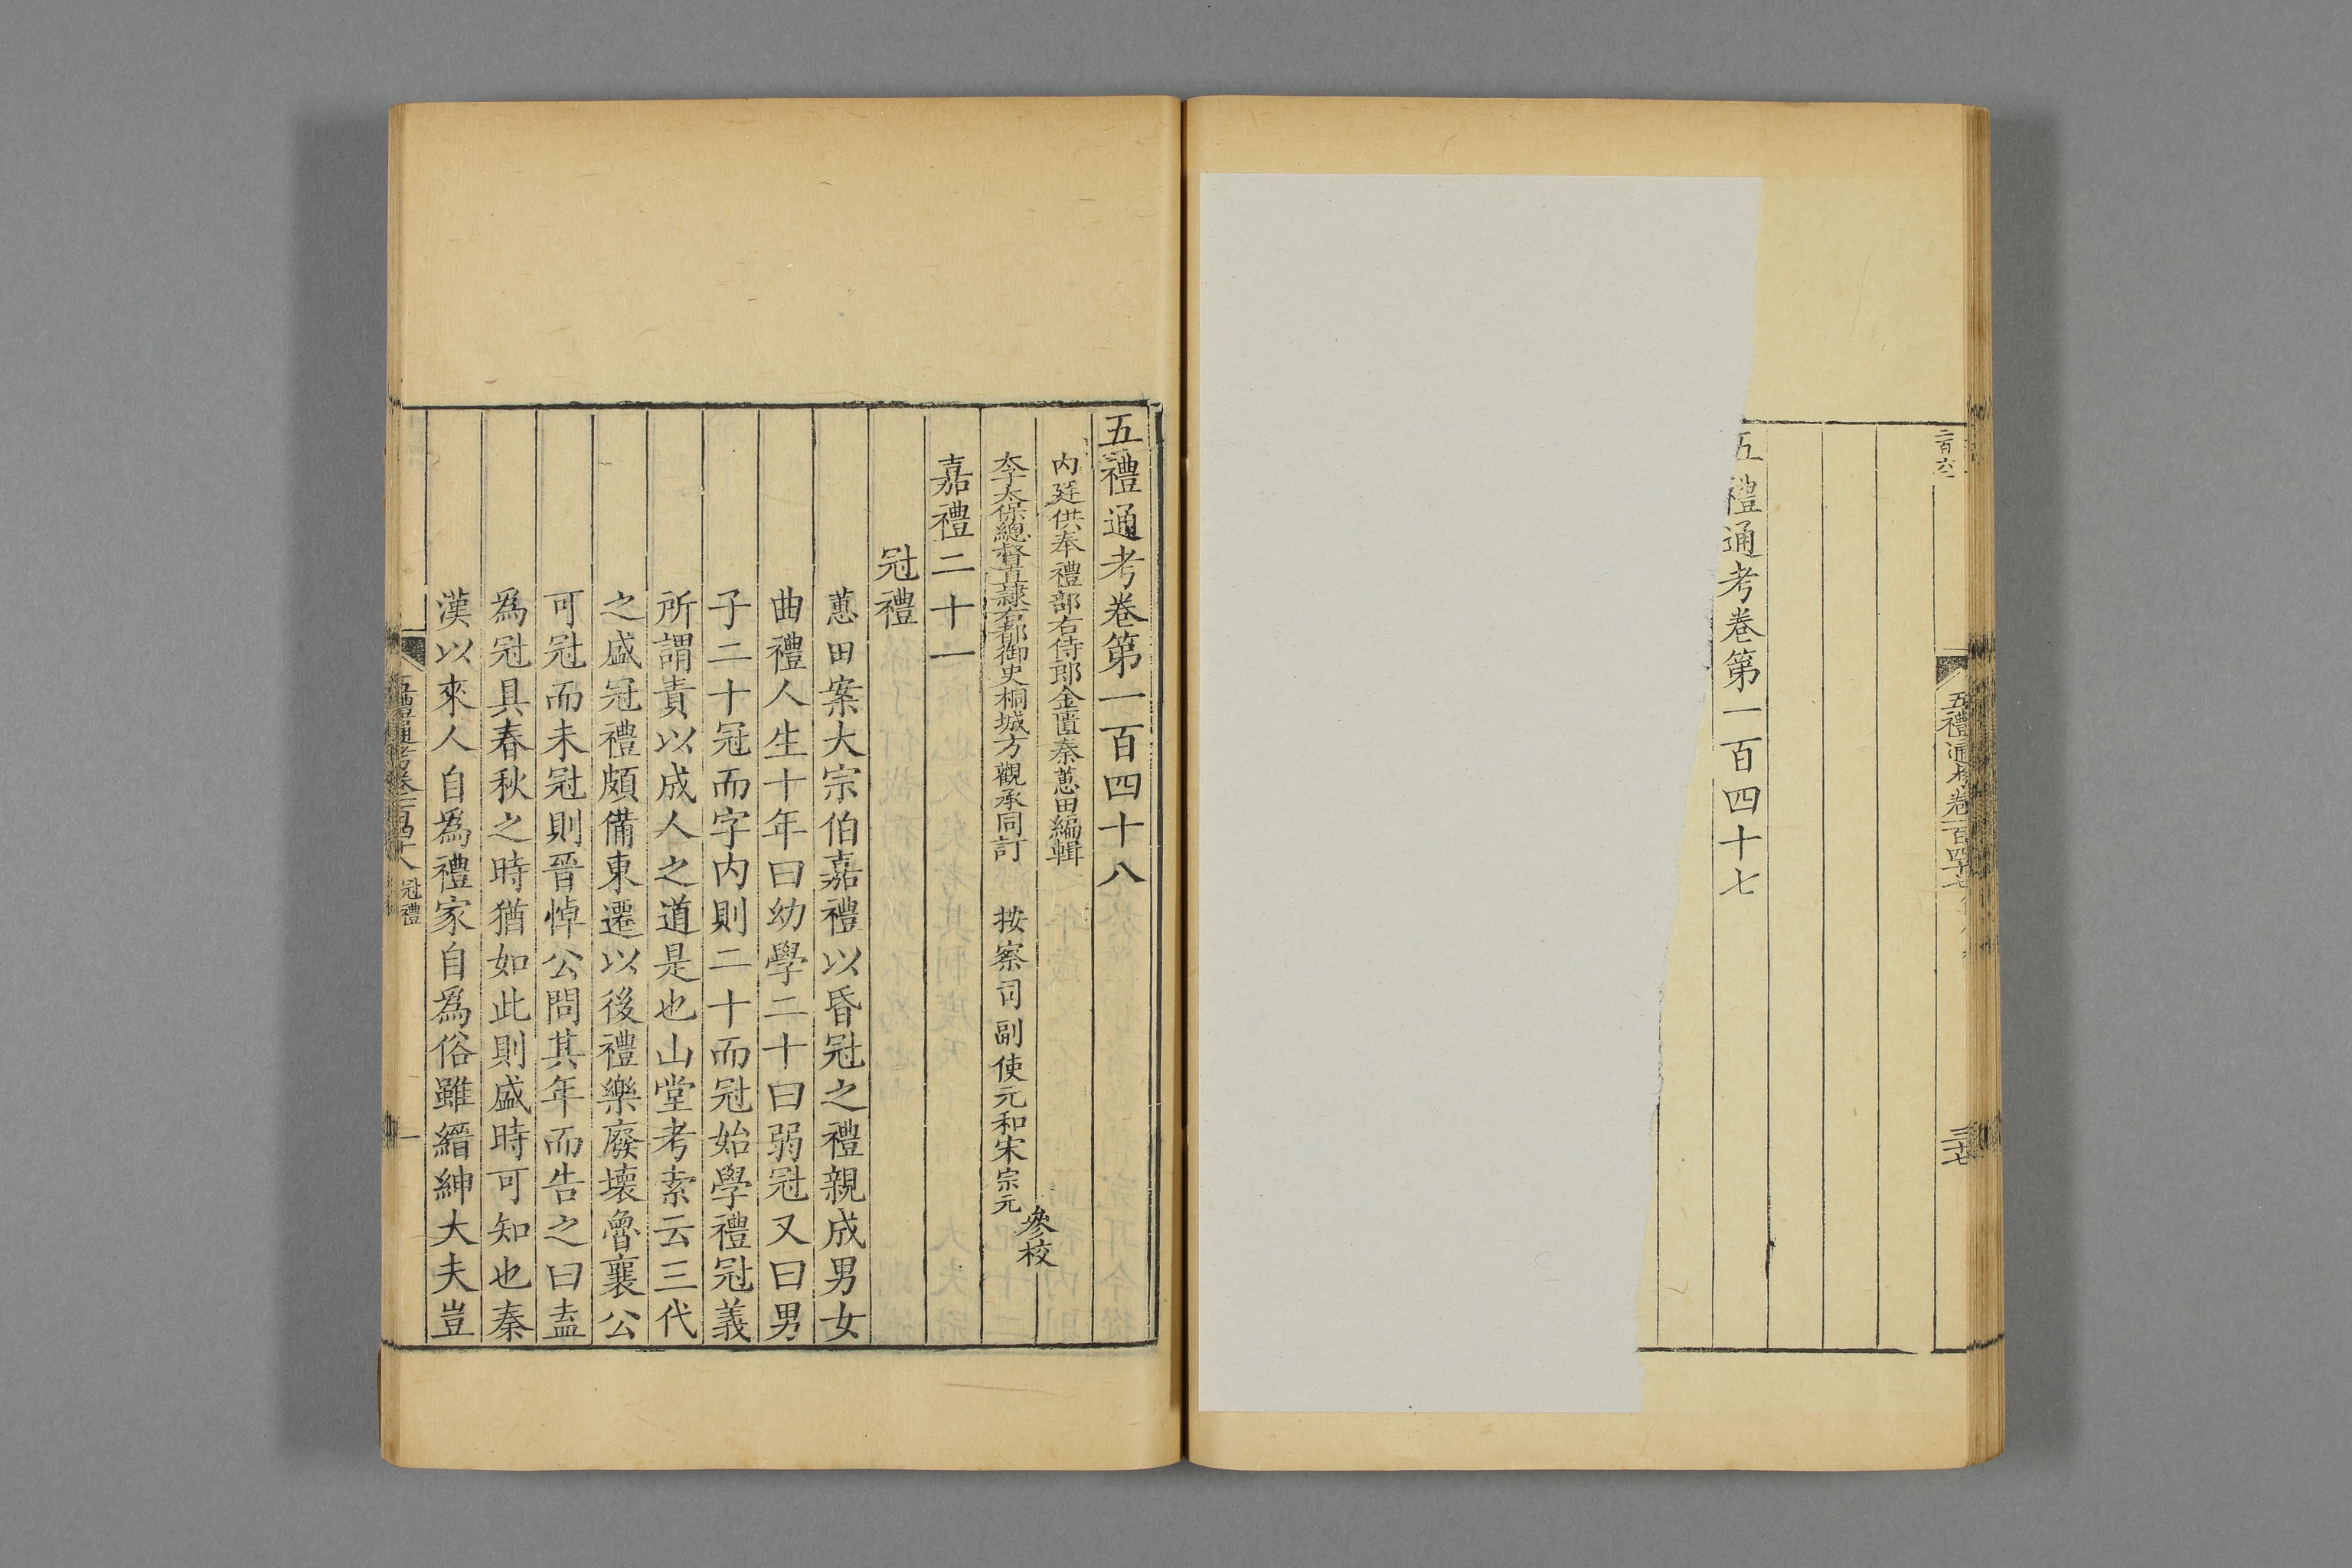 二百六
五禮通考卷一百四十七
三十七
五禮通考卷第一百四十七
五禮通考卷第一百四十八
内廷供奉禮部右侍郎金匱秦蕙田編輯
太子太保總督直隸右都御史桐城方觀承同訂
按察司副使元和宋宗元
參校
嘉禮二十一
冠禮
蕙田案大宗伯嘉禮以昏冠之禮親成男女
曲禮人生十年曰幼學二十曰弱冠又曰男
子二十冠而字内則二十而冠始學禮冠義
所謂責以成人之道是也山堂考索云三代
之盛冠禮頗備東遷以後禮樂廢壞魯襄公
可冠而未冠則晉悼公問其年而告之曰盍
為冠具春秋之時猶如此則盛時可知也秦
漢以來人自為禮家自為俗雖縉紳大夫豈
五禮通考卷一百四十八
冠禮
一